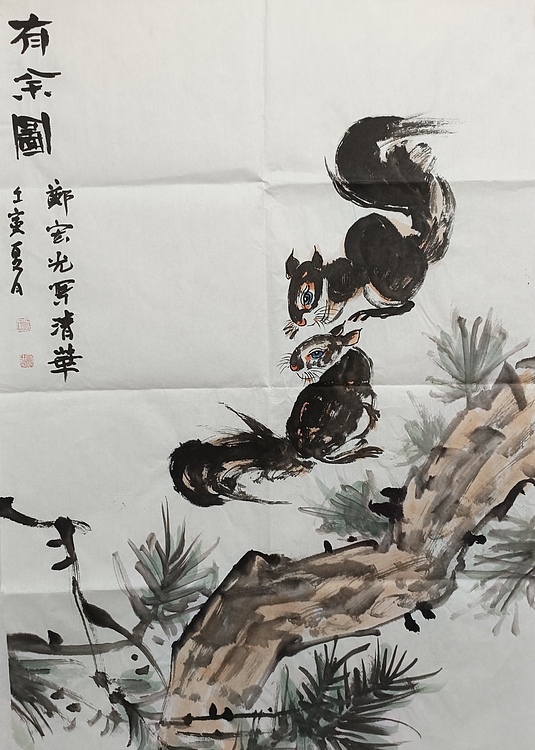 有余圖
壬寅夏月
鄭宏光寫清華